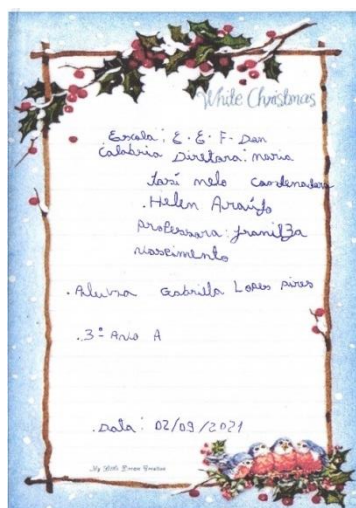 White Christmas
Escola: E. E. F. Dan
Calabria Diretora: maria
José melo Condenadora
. Helen Araújo
Professora: franilza
nascimento
. Aluna Gabrilla Lopes Pires
. 3º Ano A
. Data: 02/09/2021
My Little Dream Creation